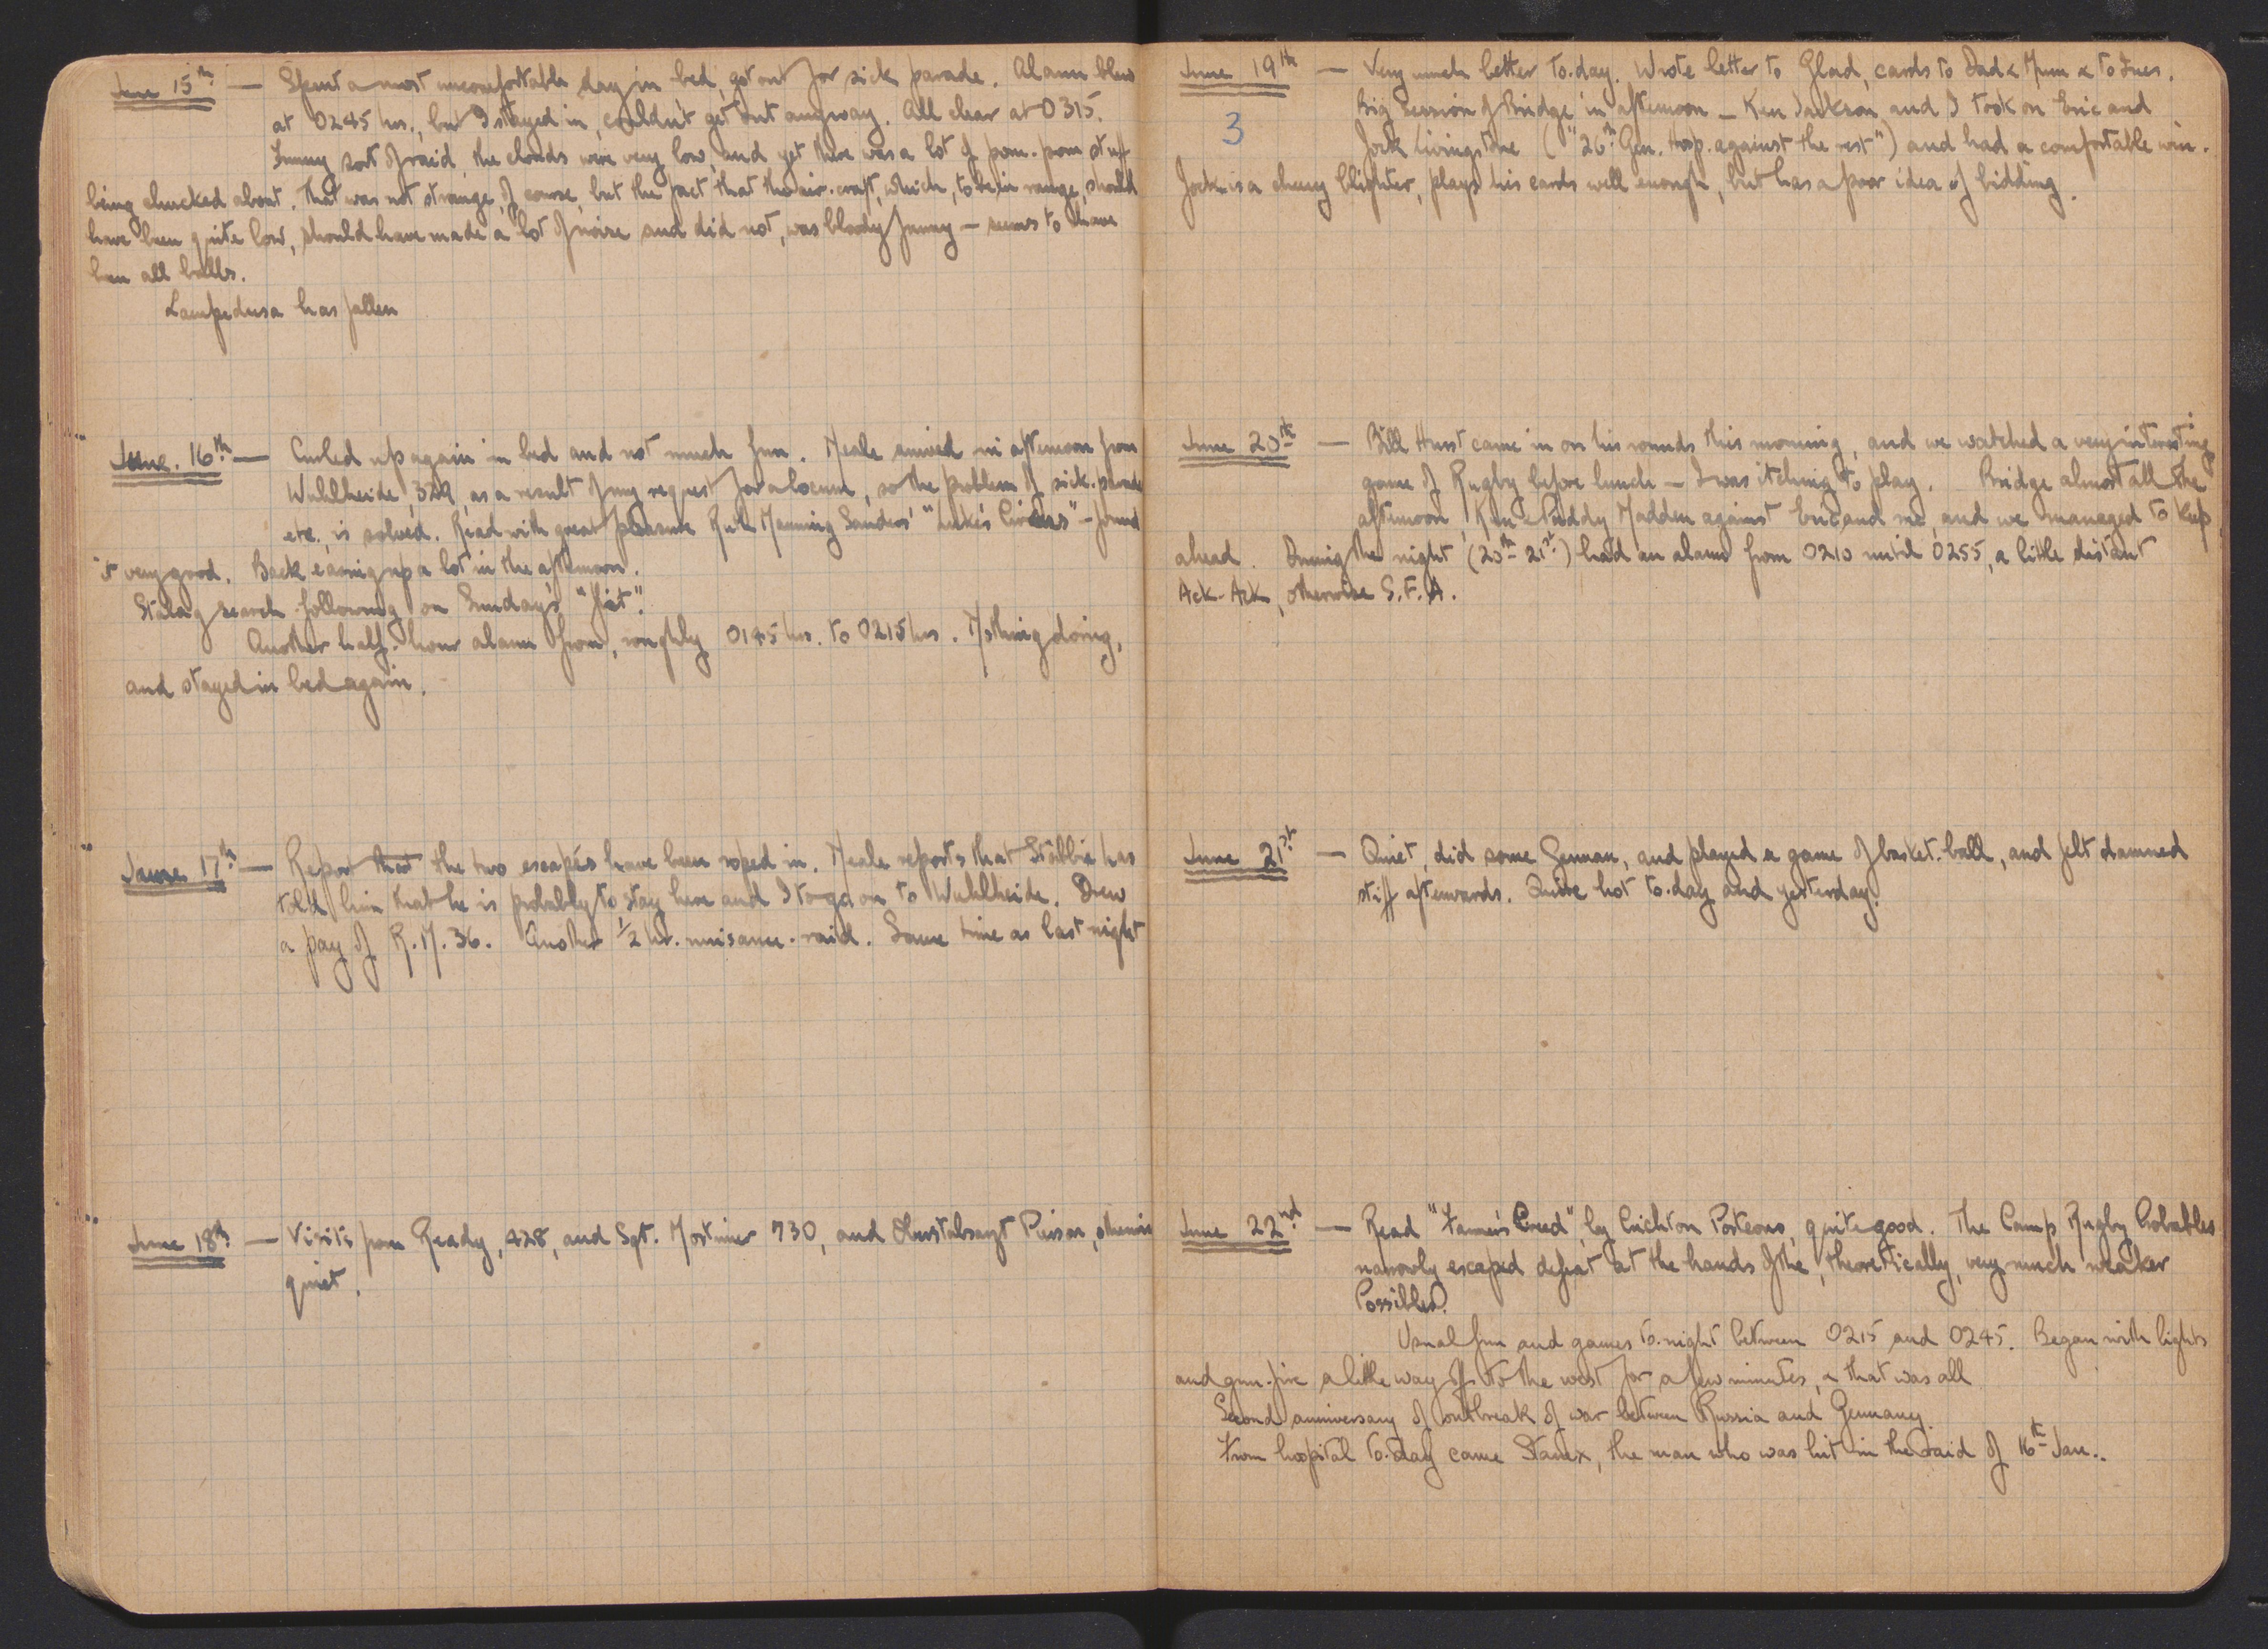 June 15th — Spent a most uncomfortable day in bed, got out for sick parade. Alarm blew
at 0245 hrs., but I stayed in, couldn't get out anyway. All clear at 0315.
Funny sort of raid, the clouds were very low, and yet there was a lot of pom-pom stuff
being chucked about. That was not strange, of course, but the fact that the air-craft, which, to be in range, should
have been quite low, should have made a lot of noise and did not, was bloody funny — seems to have
been all balls.
Lampedusa has fallen
June. 16th — Curled up again in bed and not much fun. Neale arrived in afternoon from
Wuhlheide, 329, as a result of my request for a locum, so the problem of sick-parade
etc., is solved. Read with great pleasure Ruth Manning Sanders' "Luke's Circus" — found
it very good. Back easing up a lot in the afternoon.
Stalag search following on Sunday's
Another half-hour alarm from, roughly 0145 hrs. to 0215 hrs. Nothing doing,
and stayed in bed again.
June 17th — Report that the two escapés have been roped in. Neale reports that has
told him that he is probably to stay here and I to go on to Wuhlheide. Drew
a pay of R.M. 36. Another 1/2 hr. nuisance-raid. Same time as last night
June 18th — Visits from Ready, 428, and Sgt. Mortimer 730, and otherwise
quiet.
June 19th — Very much better to-day. Wrote letter to Glad, cards to Dad & Mum & to
3
Big Session of Bridge in afternoon — Ken Jackson and I took on Eric and
Jock Livingstone ("26th Gen. Hosp. against the rest") and had a comfortable win.
Jock is a cheery blighter, plays his cards well enough, but has a poor idea of bidding.
June 20th — Bill Hurst came in on his rounds this morning, and we watched a very interesting
game of Rugby before lunch — I was itching to play. Bridge almost all the
afternoon, Ken & Paddy Madden against Eric and me, and we managed to keep
ahead. During the night (20th-21st) had an alarm from 0210 until 0255, a little distant
Ack-Ack, otherwise S.F.A.
June 21st — Quiet, did some German, and played a game of basket-ball, and felt damned
stiff afterwards. Quite hot to-day and yesterday.
June 22nd — Read "Farmer's Creed", by Crichton Porteous, quite good. The Camp Rugby Probables
narrowly escaped defeat at the hands of the, theoretically, very much weaker
Possibles.
Usual fun and games to-night between 0215 and 0245. Began with lights
and gun-fire a little way off to the west for a few minutes, & that was all
Second anniversary of outbreak of war between Russia and Germany.
From hospital to-day came the man who was hit in the raid of 16th Jan..